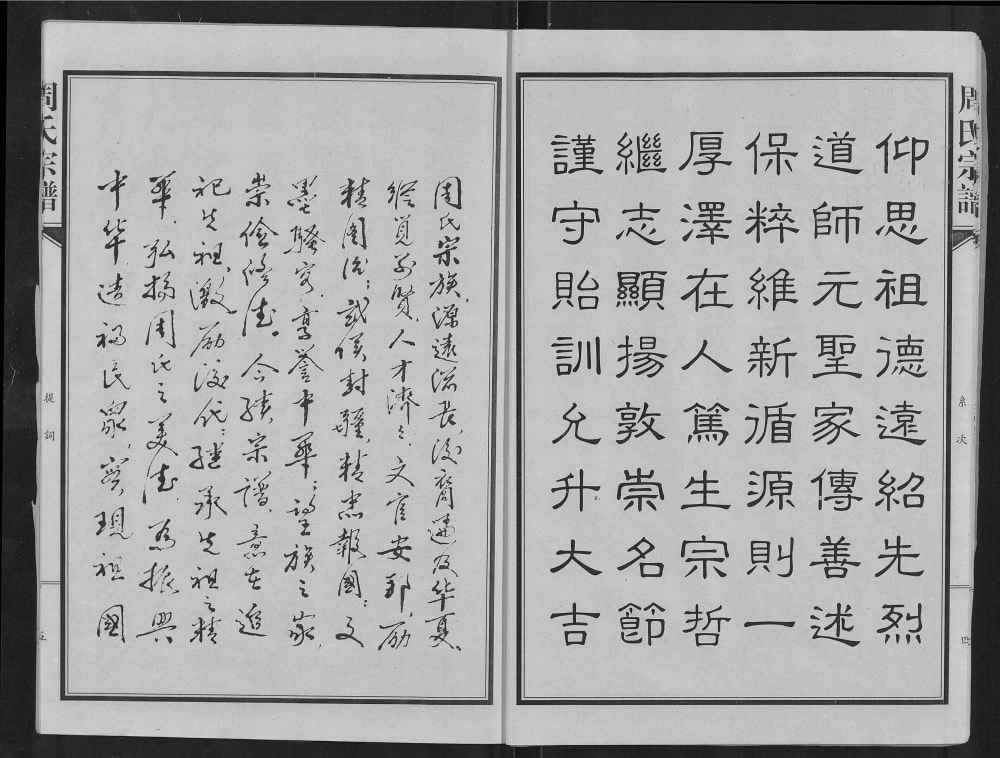 周氏宗譜
系次
四
仰思祖德遠紹先烈
道師元聖家傳善述
保粹維新循源則一
厚澤在人篤生宗哲
繼志顯揚敦崇名節
謹守貽訓允升大吉
周氏宗族，源遠流长，後裔遍及华夏，
纵览前賢，人才濟々，文官安邦，励
精图治；武侯封疆，精忠報國；文
墨騷客，享誉中華；望族之家，
崇儉修德。今續宗譜，意在追
祀先祖，激励後代；继承先祖之精
華，弘扬周氏之美德，為振興
中华，造福民眾，实現祖國
周氏宗譜
提詞
五